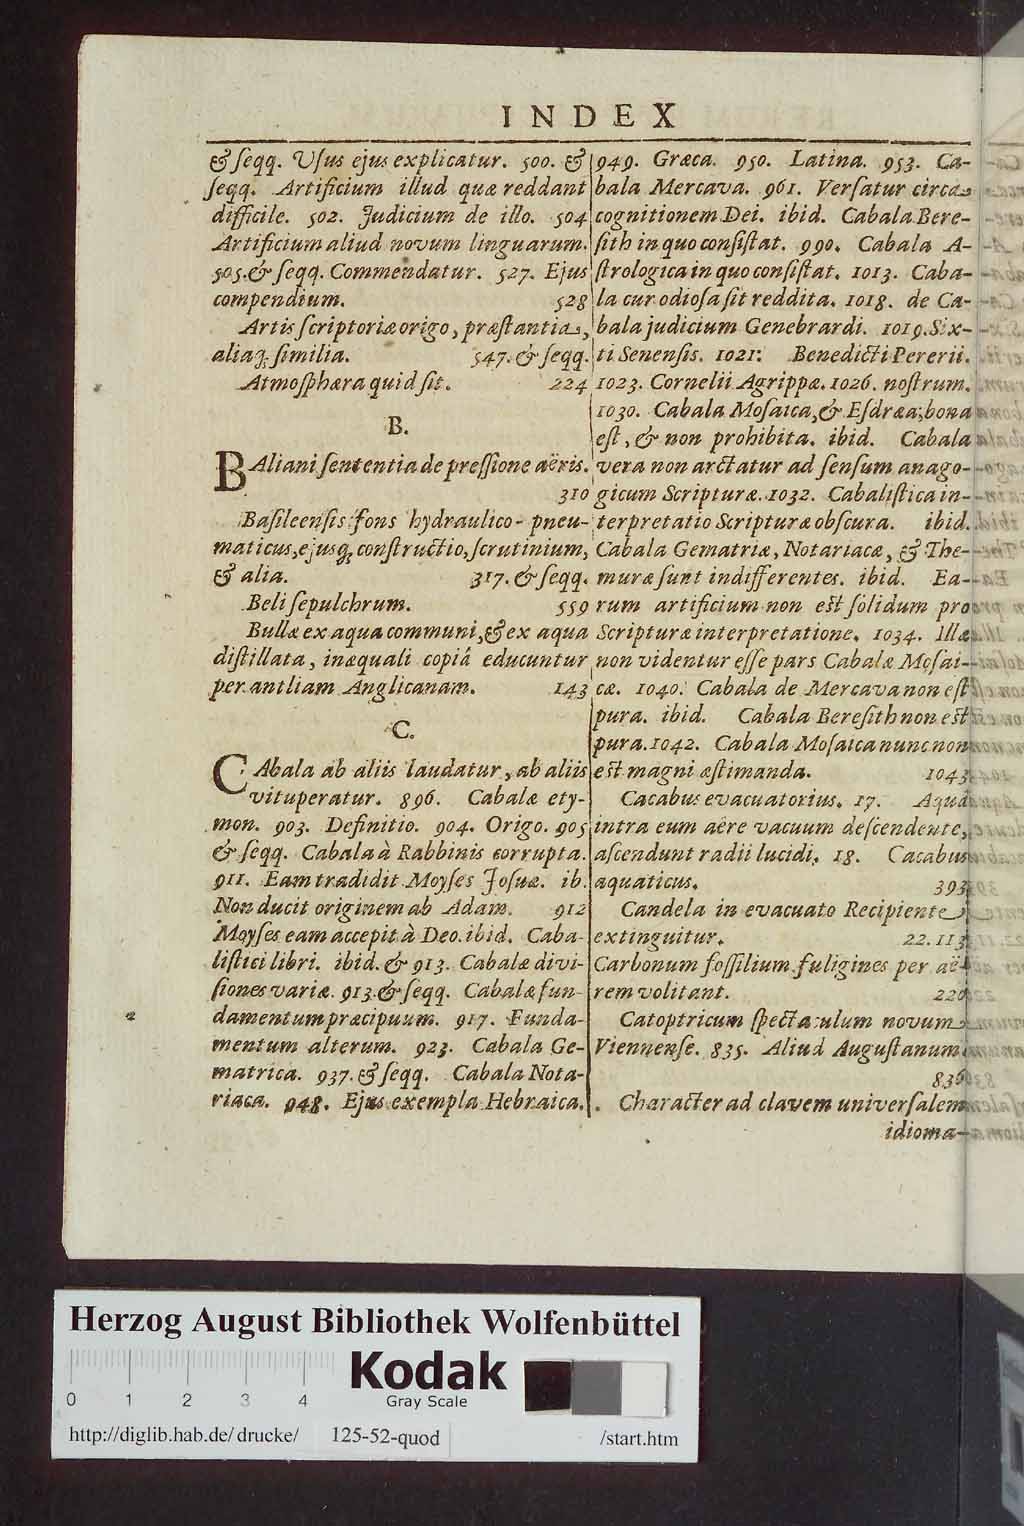 INDEX
& ſeqq. Uſus ejus explicatur. 500. &
ſeqq. Artificium illud quæ reddant
difficile. 502. Judicium de illo. 504
Artificium aliud novum linguarum.
505. & ſeqq. Commendatur. 527. Ejus
compendium. 528
Artis ſcriptoriæ origo, præſtantia,
aliaq; ſimilia. 547. & ſeqq.
Atmoſphæra quid ſit. 224
B.
BAliani ſententia de preſſione aëris.
310
Baſileenſis fons hydraulico-pneu-
maticus, ejusq; conſtructio, ſcrutinium,
& alia. 317. & ſeqq.
Beli ſepulchrum. 559
Bullæ ex aqua communi, & ex aqua
diſtillata, inæquali copiâ educuntur
per antliam Anglicanam. 143
C.
CAbala ab aliis laudatur, ab aliis
vituperatur. 896. Cabalæ ety-
mon. 903. Definitio. 904. Origo. 905
& ſeqq. Cabala à Rabbinis corrupta.
911. Eam tradidit Moyſes Joſuæ. ib.
Non ducit originem ab Adam. 912
Moyſes eam accepit à Deo. ibid. Caba-
liſtici libri. ibid. & 913. Cabalæ divi-
ſiones variæ. 913. & ſeqq. Cabalæ fun-
damentum præcipuum. 917. Funda-
mentum alterum. 923. Cabala Ge-
matrica. 937. & ſeqq. Cabala Nota-
riaca. 948. Ejus exempla Hebraica.
949. Græca. 950. Latina. 953. Ca-
bala Mercava. 961. Verſatur circa
cognitionem Dei. ibid. Cabala Bere-
ſith in quo conſiſtat. 990. Cabala A-
ſtrologica in quo conſiſtat. 1013. Caba-
la cur odioſa ſit reddita. 1018. de Ca-
bala judicium Genebrardi. 1019. Six-
ti Senenſis. 1021. Benedicti Pererii.
1023. Cornelii Agrippæ. 1026. noſtrum.
1030. Cabala Moſaica, & Eſdræa, bona
eſt, & non prohibita. ibid. Cabala
vera non arctatur ad ſenſum anago-
gicum Scripturæ. 1032. Cabaliſtica in-
terpretatio Scripturæ obſcura. ibid.
Cabala Gematriæ, Notariacæ, & The-
muræ ſunt indifferentes. ibid. Ea-
rum artificium non eſt ſolidum pro
Scripturæ interpretatione. 1034. Illæ
non videntur eſſe pars Cabalæ Moſai-
cæ. 1040. Cabala de Mercava non eſt
pura. ibid. Cabala Bereſith non eſt
pura. 1042. Cabala Moſaica nunc non
eſt magni æſtimanda. 1043
Cacabus evacuatorius. 17. Aquâ
intra eum aëre vacuum deſcendente,
aſcendunt radii lucidi. 18. Cacabus
aquaticus. 393
Candela in evacuato Recipiente
extinguitur. 22. 113
Carbonum foſſilium fuligines per aë-
rem volitant. 220
Catoptricum ſpectaculum novum
Viennenſe. 835. Aliud Auguſtanum
836
Character ad clavem univerſalem
idioma-
Herzog August Bibliothek Wolfenbüttel
Kodak
Gray Scale
0 1 2 3 4
http://diglib.hab.de/drucke/ 125-52-quod /start.htm